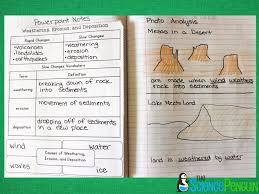 Powerpoint Notes
Weathering, Erosion, and Deposition
Rapid Changes
Slow Changes
•volcanoes
•landslides
•earthquakes
•weathering
•erosion
•deposition
Slow Changes Vocabulary
Term
Definition
weathering
breaking down of rock into sediments
erosion
movement of sediments
deposition
dropping off of sediments in a new place
Causes of Weathering, Erosion, and Deposition
wind
water
waves
ice
Photo Analysis
Mesas in a Desert
are made when wind weathers
rocks
Lake Meets Land
and is weathered by water
THE
SciencePenguin